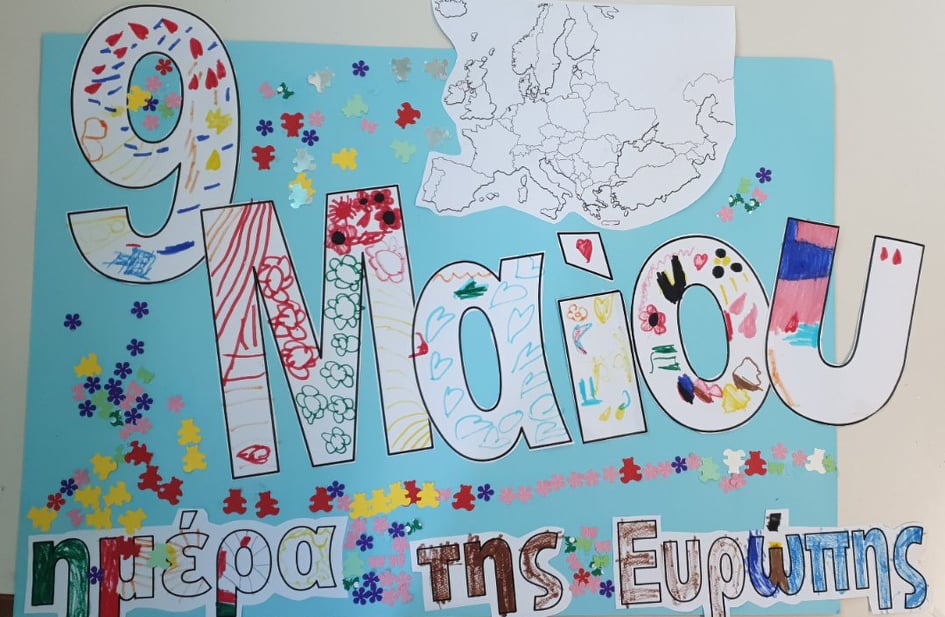 9
Μαΐου
ημέρα της Ευρώπης